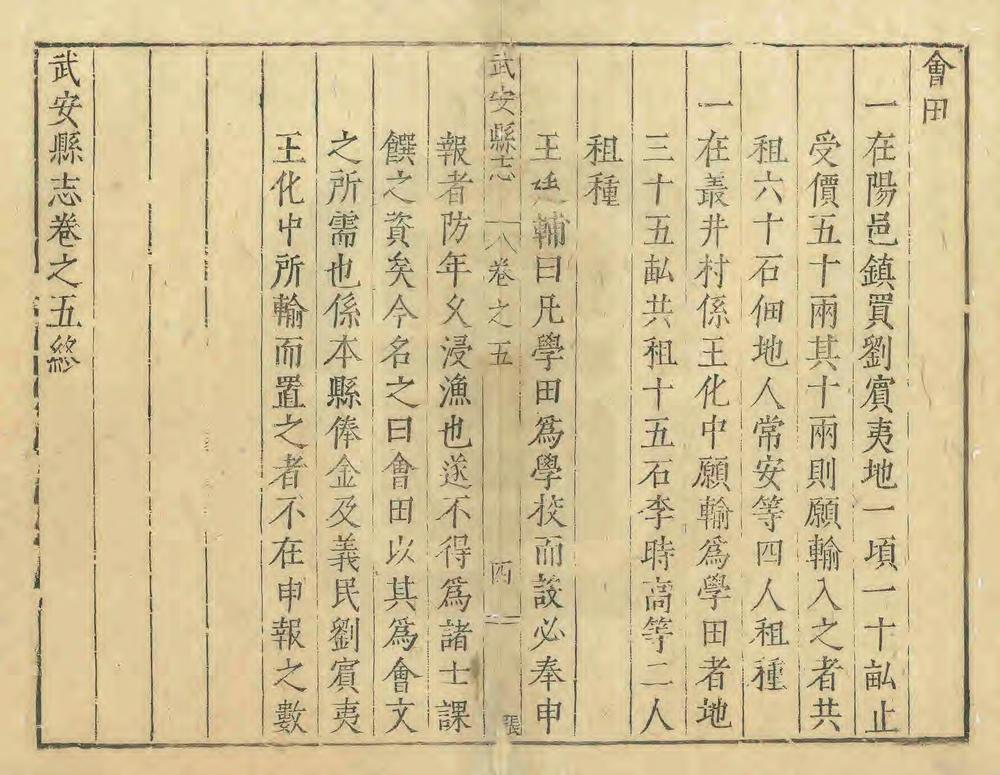 會田
一在陽邑鎮買劉賓夷地一項一十畝止
受價五十兩其十兩則願輸入之者共
租六十石佃地人常安等四人租種
一在叢井村係王化中願輸爲學田者地
三十五畝共租十五石李時高等二人
租種
王廷輔曰凡學田爲學校而設必奉申
武安縣志
卷之五
四
張
報者防年久浸漁也遂不得爲諸士課
饌之資矣今名之曰會田以其爲會文
之所需也係本縣俸金及義民劉賓夷
王化中所輸而置之者不在申報之數
武安縣志卷之五終